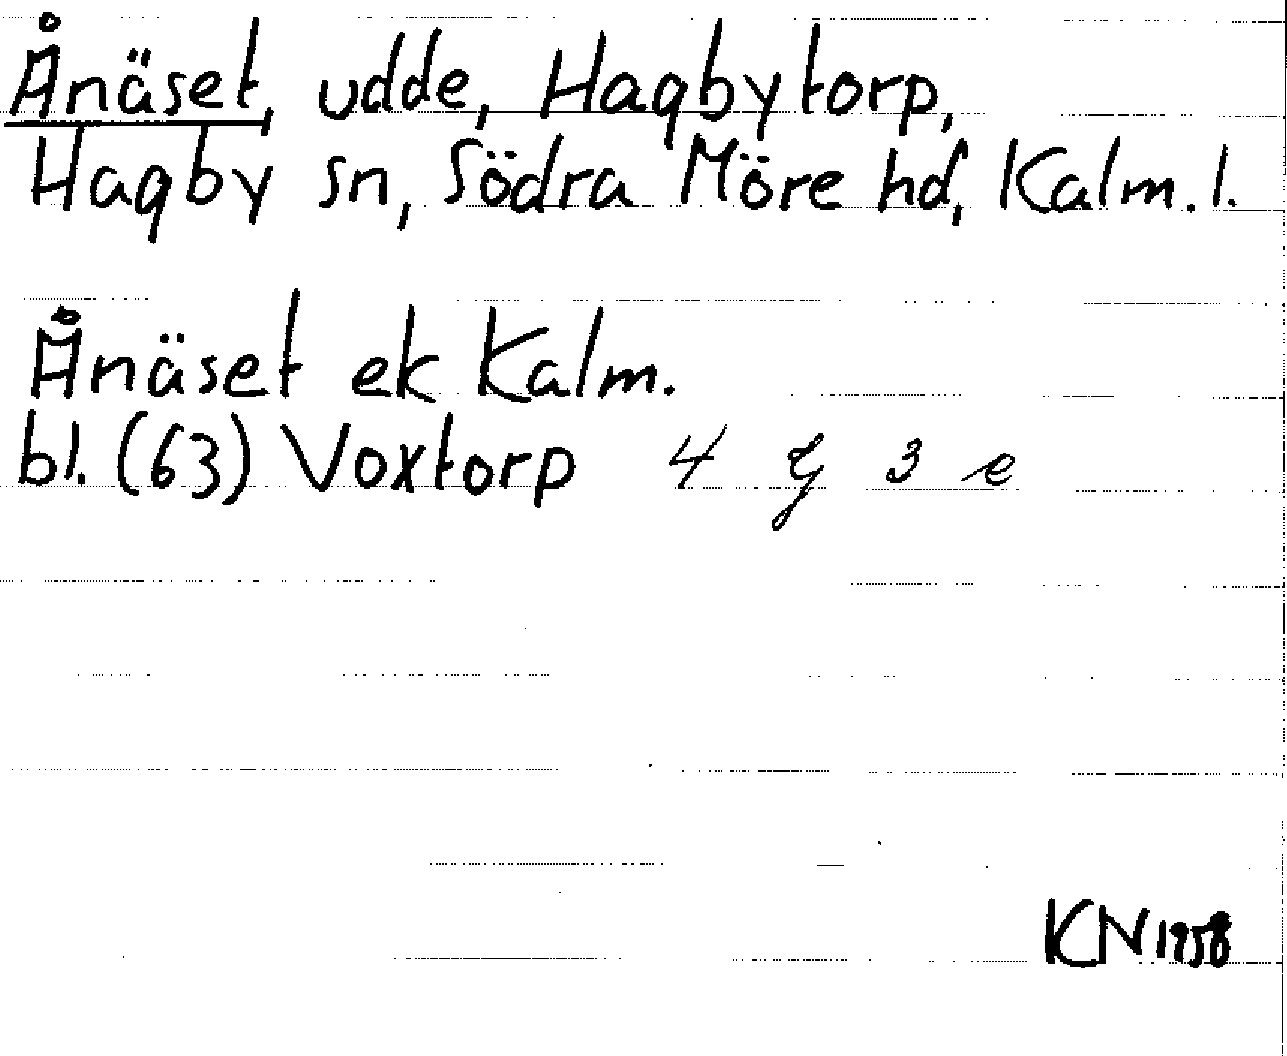 Ånäset, udde, Hagbytorp,
Hagby sn, Södra Möre hd, Kalm. l.
Ånäset ek Kalm.
bl. (63) Voxtorp 4 G 3 e
KN 1958